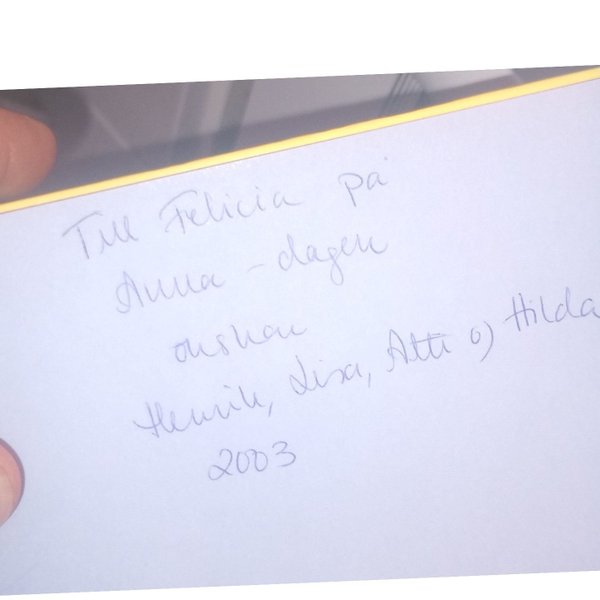 Till Felicia på
Anna-dagen
önskar
Henrik, Lisa, Atti oj Hilda
2003